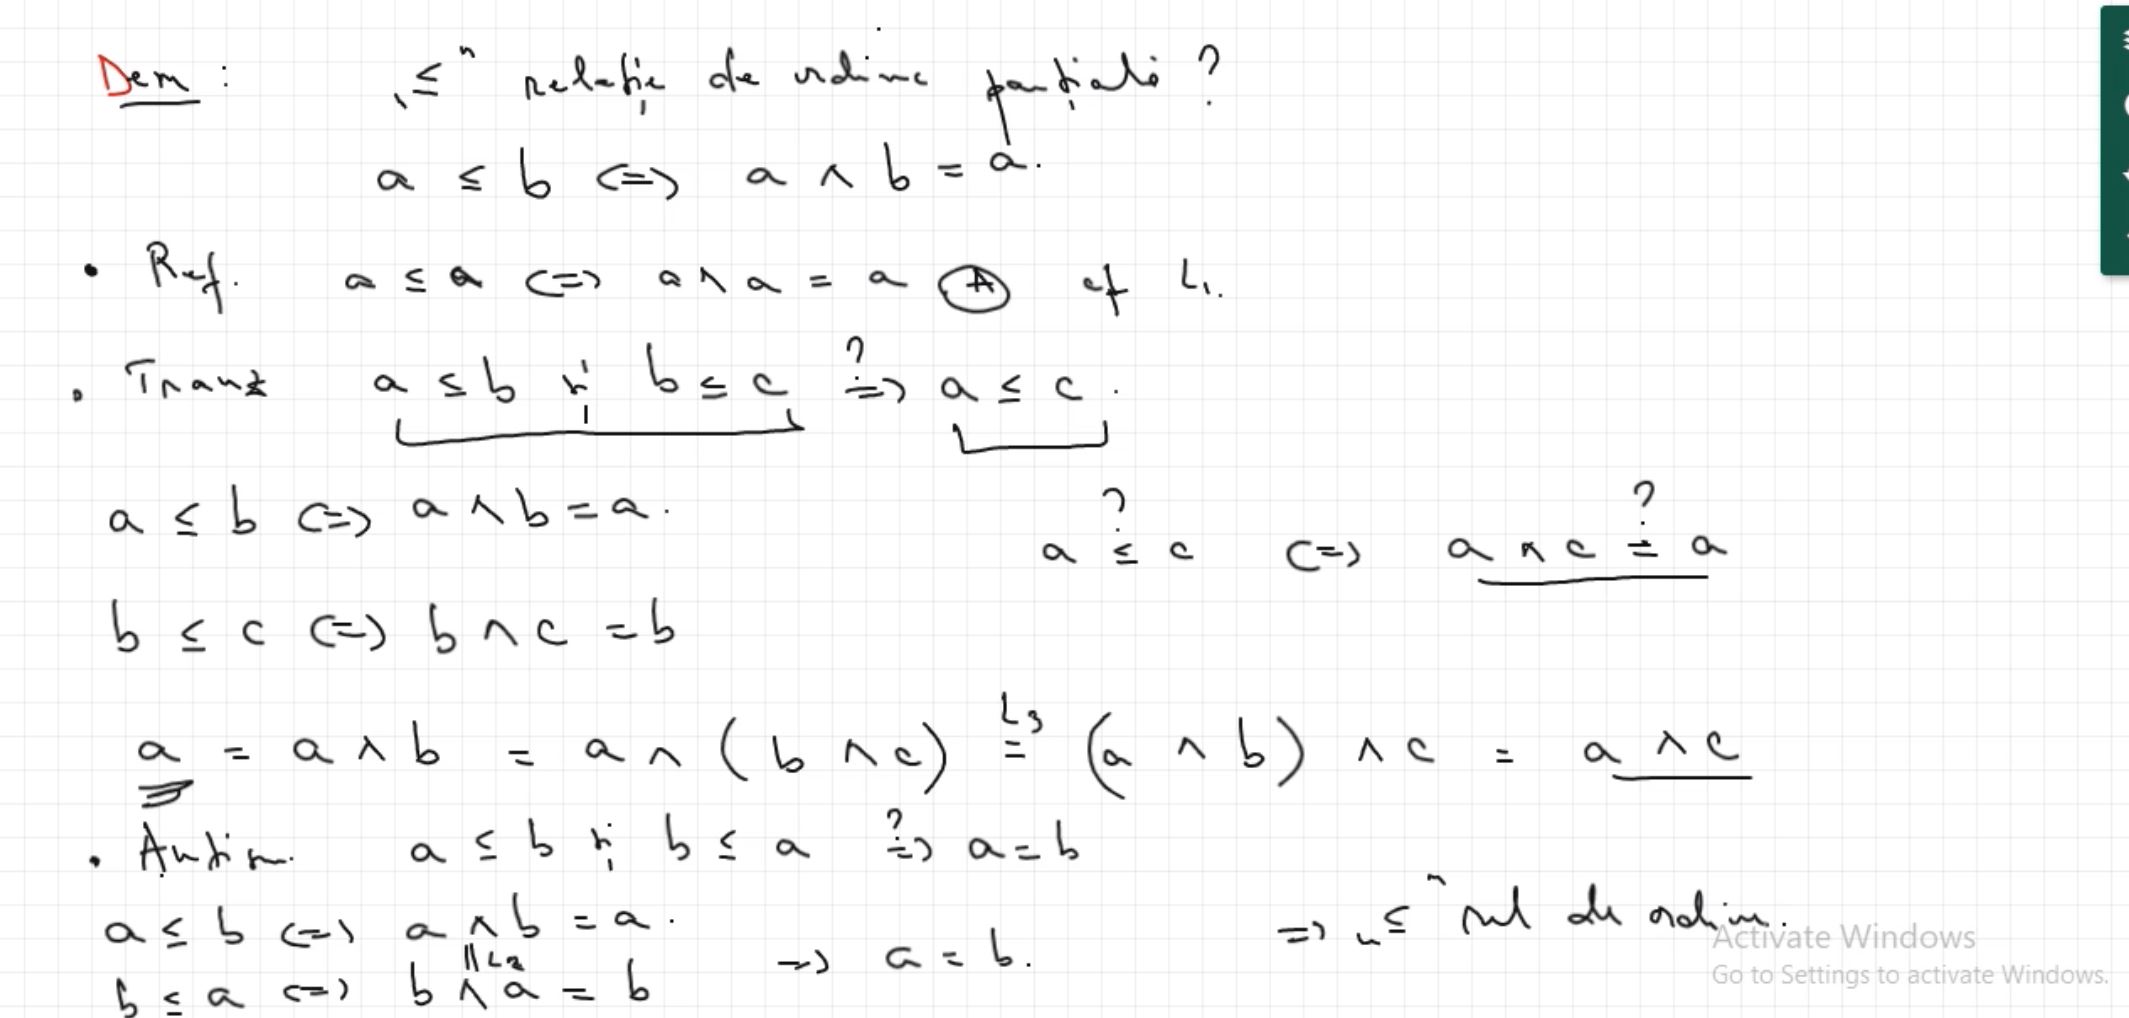 Dem : „≤" relație de ordine parțială ?
a ≤ b <=> a ∧ b = a.
• Ref. a ≤ a <=> a ∧ a = a (A) cf L1.
• Tranz a ≤ b și b ≤ c ?=> a ≤ c.
a ≤ b <=> a ∧ b = a.
a ?≤ c <=> a ∧ c ?= a
b ≤ c <=> b ∧ c = b
a = a ∧ b = a ∧ (b ∧ c) L3= (a ∧ b) ∧ c = a ∧ c
• Antisim. a ≤ b și b ≤ a ?=> a = b
a ≤ b <=> a ∧ b = a.
|| L2
b ≤ a <=> b ∧ a = b
=> a = b.
=> „≤" rel de ordine.
Activate Windows
Go to Settings to activate Windows.